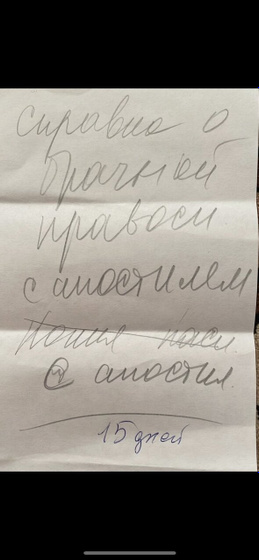 справка о
брачной
правосп
с апостилем
Копия пасп.
с апостил.
15 дней